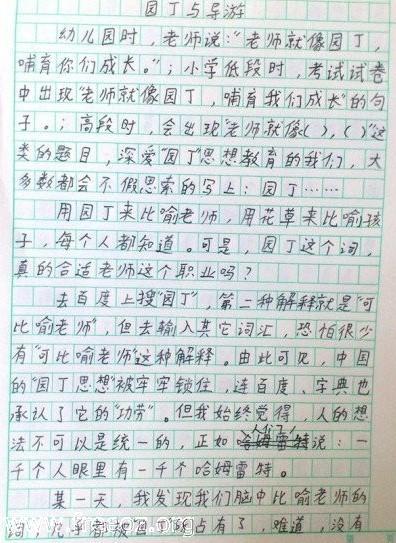 园丁与导游
幼儿园时，老师说：“老师就像园丁，
哺育你们成长。”；小学低段时，考试试卷
中出现“老师就像园丁，哺育我们成长”的句
子。；高段时，会出现“老师就像( )，( )”这
类的题目，深爱“园丁”思想教育的我们，大
多数都会不假思索的写上：园丁……
用园丁来比喻老师，用花草来比喻孩
子，每个人都知道。可是，园丁这个词，
真的合适老师这个职业吗？
去百度上搜“园丁”，第二种解释就是“可
比喻老师”，但去输入其它词汇，恐怕很少
有“可比喻老师”这种解释。由此可见，中国
的“园丁思想”被牢牢锁住，连百度、字典也
承认了它的“功劳”。但我始终觉得，人的想
法不可以是统一的，正如人们说：一
千个人眼里有一千个哈姆雷特。
某一天，我发现我们脑中比喻老师的
词，几乎都被园丁占有了，难道，没有